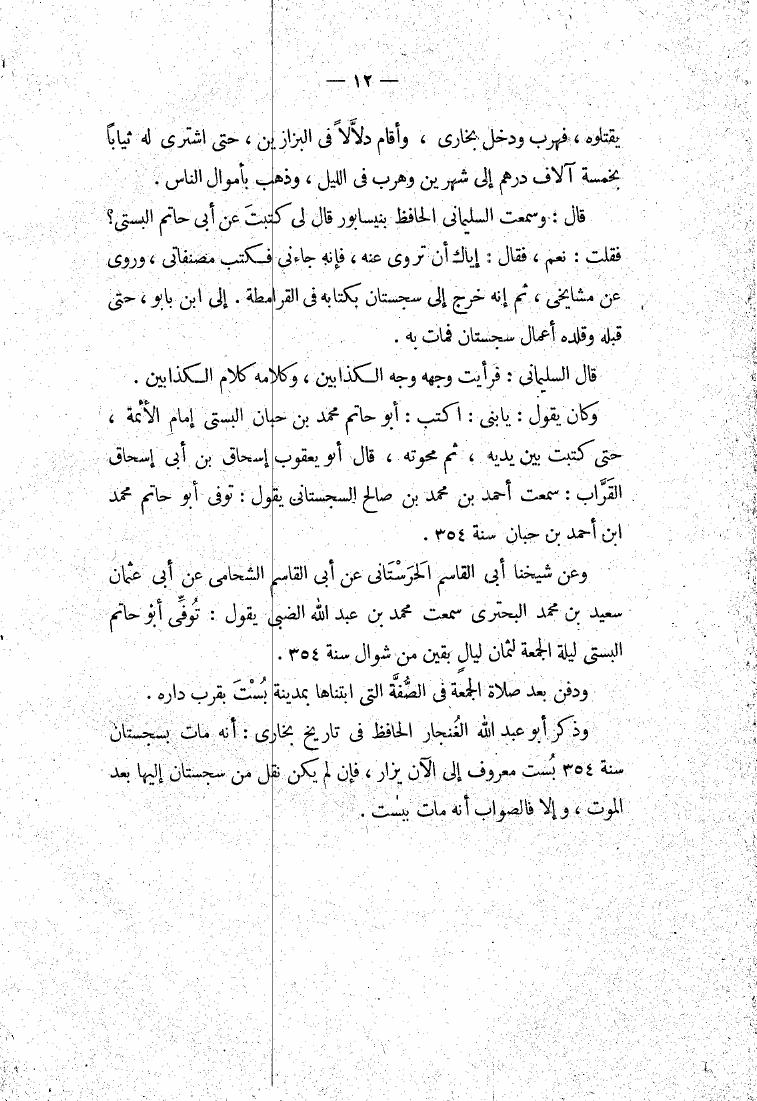 — ١٢ —
يقتلوه ، فهرب ودخل بخارى ، وأقام دلاَّلاً فى البزازين ، حتى اشترى له ثياباً
بخمسة آلاف درهم إلى شهرين وهرب فى الليل ، وذهب بأموال الناس .
قال : وسمعت السليمانى الحافظ بنيسابور قال لى كتبتَ عن أبى حاتم البستى؟
فقلت : نعم ، فقال : إياك أن تروى عنه ، فإنه جاءنى فكتب مصنفاتى ، وروى
عن مشايخى ، ثم إنه خرج إلى سجستان بكتابه فى القرامطة . إلى ابن بابو ، حتى
قبله وقلده أعمال سجستان فمات به .
قال السليمانى : فرأيت وجهه وجه الكذابين ، وكلامه كلام الكذابين .
وكان يقول : يابنى : اكتب : أبو حاتم محمد بن حبان البستى إمام الأئمة ،
حتى كتبت بين يديه ، ثم محوته ، قال أبو يعقوب إسحاق بن أبى إسحاق
القَرَّاب : سمعت أحمد بن محمد بن صالح السجستانى يقول : توفى أبو حاتم محمد
ابن أحمد بن حبان سنة ٣٥٤ .
وعن شيخنا أبى القاسم الحَرَسْتَانى عن أبى القاسم الشحامى عن أبى عثمان
سعيد بن محمد البحترى سمعت محمد بن عبد الله الضبى يقول : تُوفِّى أبو حاتم
البستى ليلة الجمعة لثمان ليالٍ بقين من شوال سنة ٣٥٤ .
ودفن بعد صلاة الجمعة فى الصُّفَّة التى ابتناها بمدينة بُسْتَ بقرب داره .
وذكر أبو عبد الله الغُنجار الحافظ فى تاريخ بخارى : أنه مات بسجستان
سنة ٣٥٤ بُست معروف إلى الآن يزار ، فإن لم يكن نقل من سجستان إليها بعد
الموت ، وإلا فالصواب أنه مات ببُست .